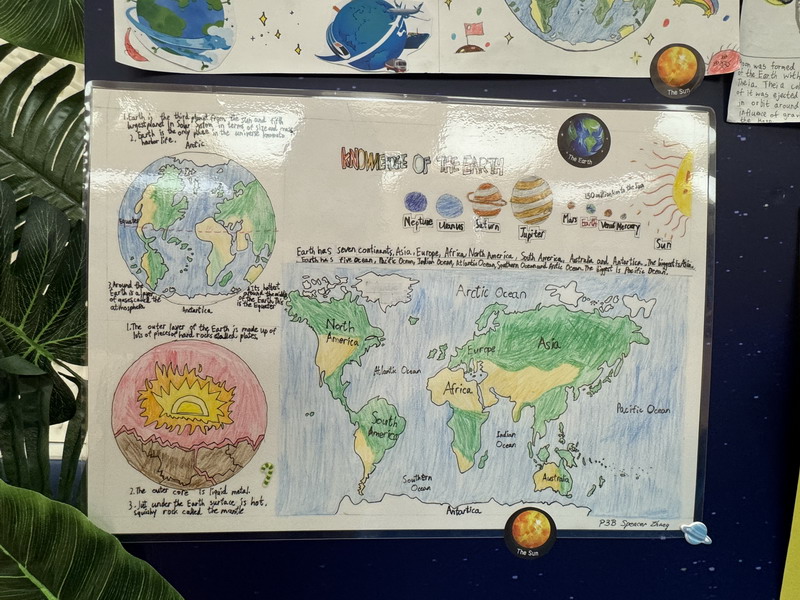 The Sun
was formed
of the Earth with
Theia. Theia
of it was ejected
in orbit around
influence of
1. Earth is the third planet from the sun and fifth
largest planet in Solar System in terms of size and mass.
2. Earth is the only place in the universe known to
harbor life.
Arctic
Equator
3. Around the
Earth is a layer
of gases called the
atmosphere
Antarctica
around the middle
of the Earth. This
is the Equator
1. The outer layer of the Earth is made up of
lots of pieces of hard rocks called plates.
2. The outer core is liquid metal.
3. Just under the Earth surface is hot,
squishy rock called the mantle
KNOWLEDGE OF THE EARTH
The Earth
Neptune
Uranus
Saturn
Jupiter
Mars
Earth
Venus
Mercury
Sun
Earth has seven continents, Asia, Europe, Africa, North America, South America, Australia and Antartica. The biggest is Asia.
Earth has five Ocean, Pacific Ocean, Indian Ocean, Atlantic Ocean, Southern Ocean and Arctic Ocean. The biggest is Pacific Ocean.
Arctic Ocean
North
America
Europe
Asia
Atlantic Ocean
Africa
Pacific Ocean
South
America
Indian
Ocean
Australia
Southern
Ocean
Antartica
P3B Spencer Zhang
The Sun